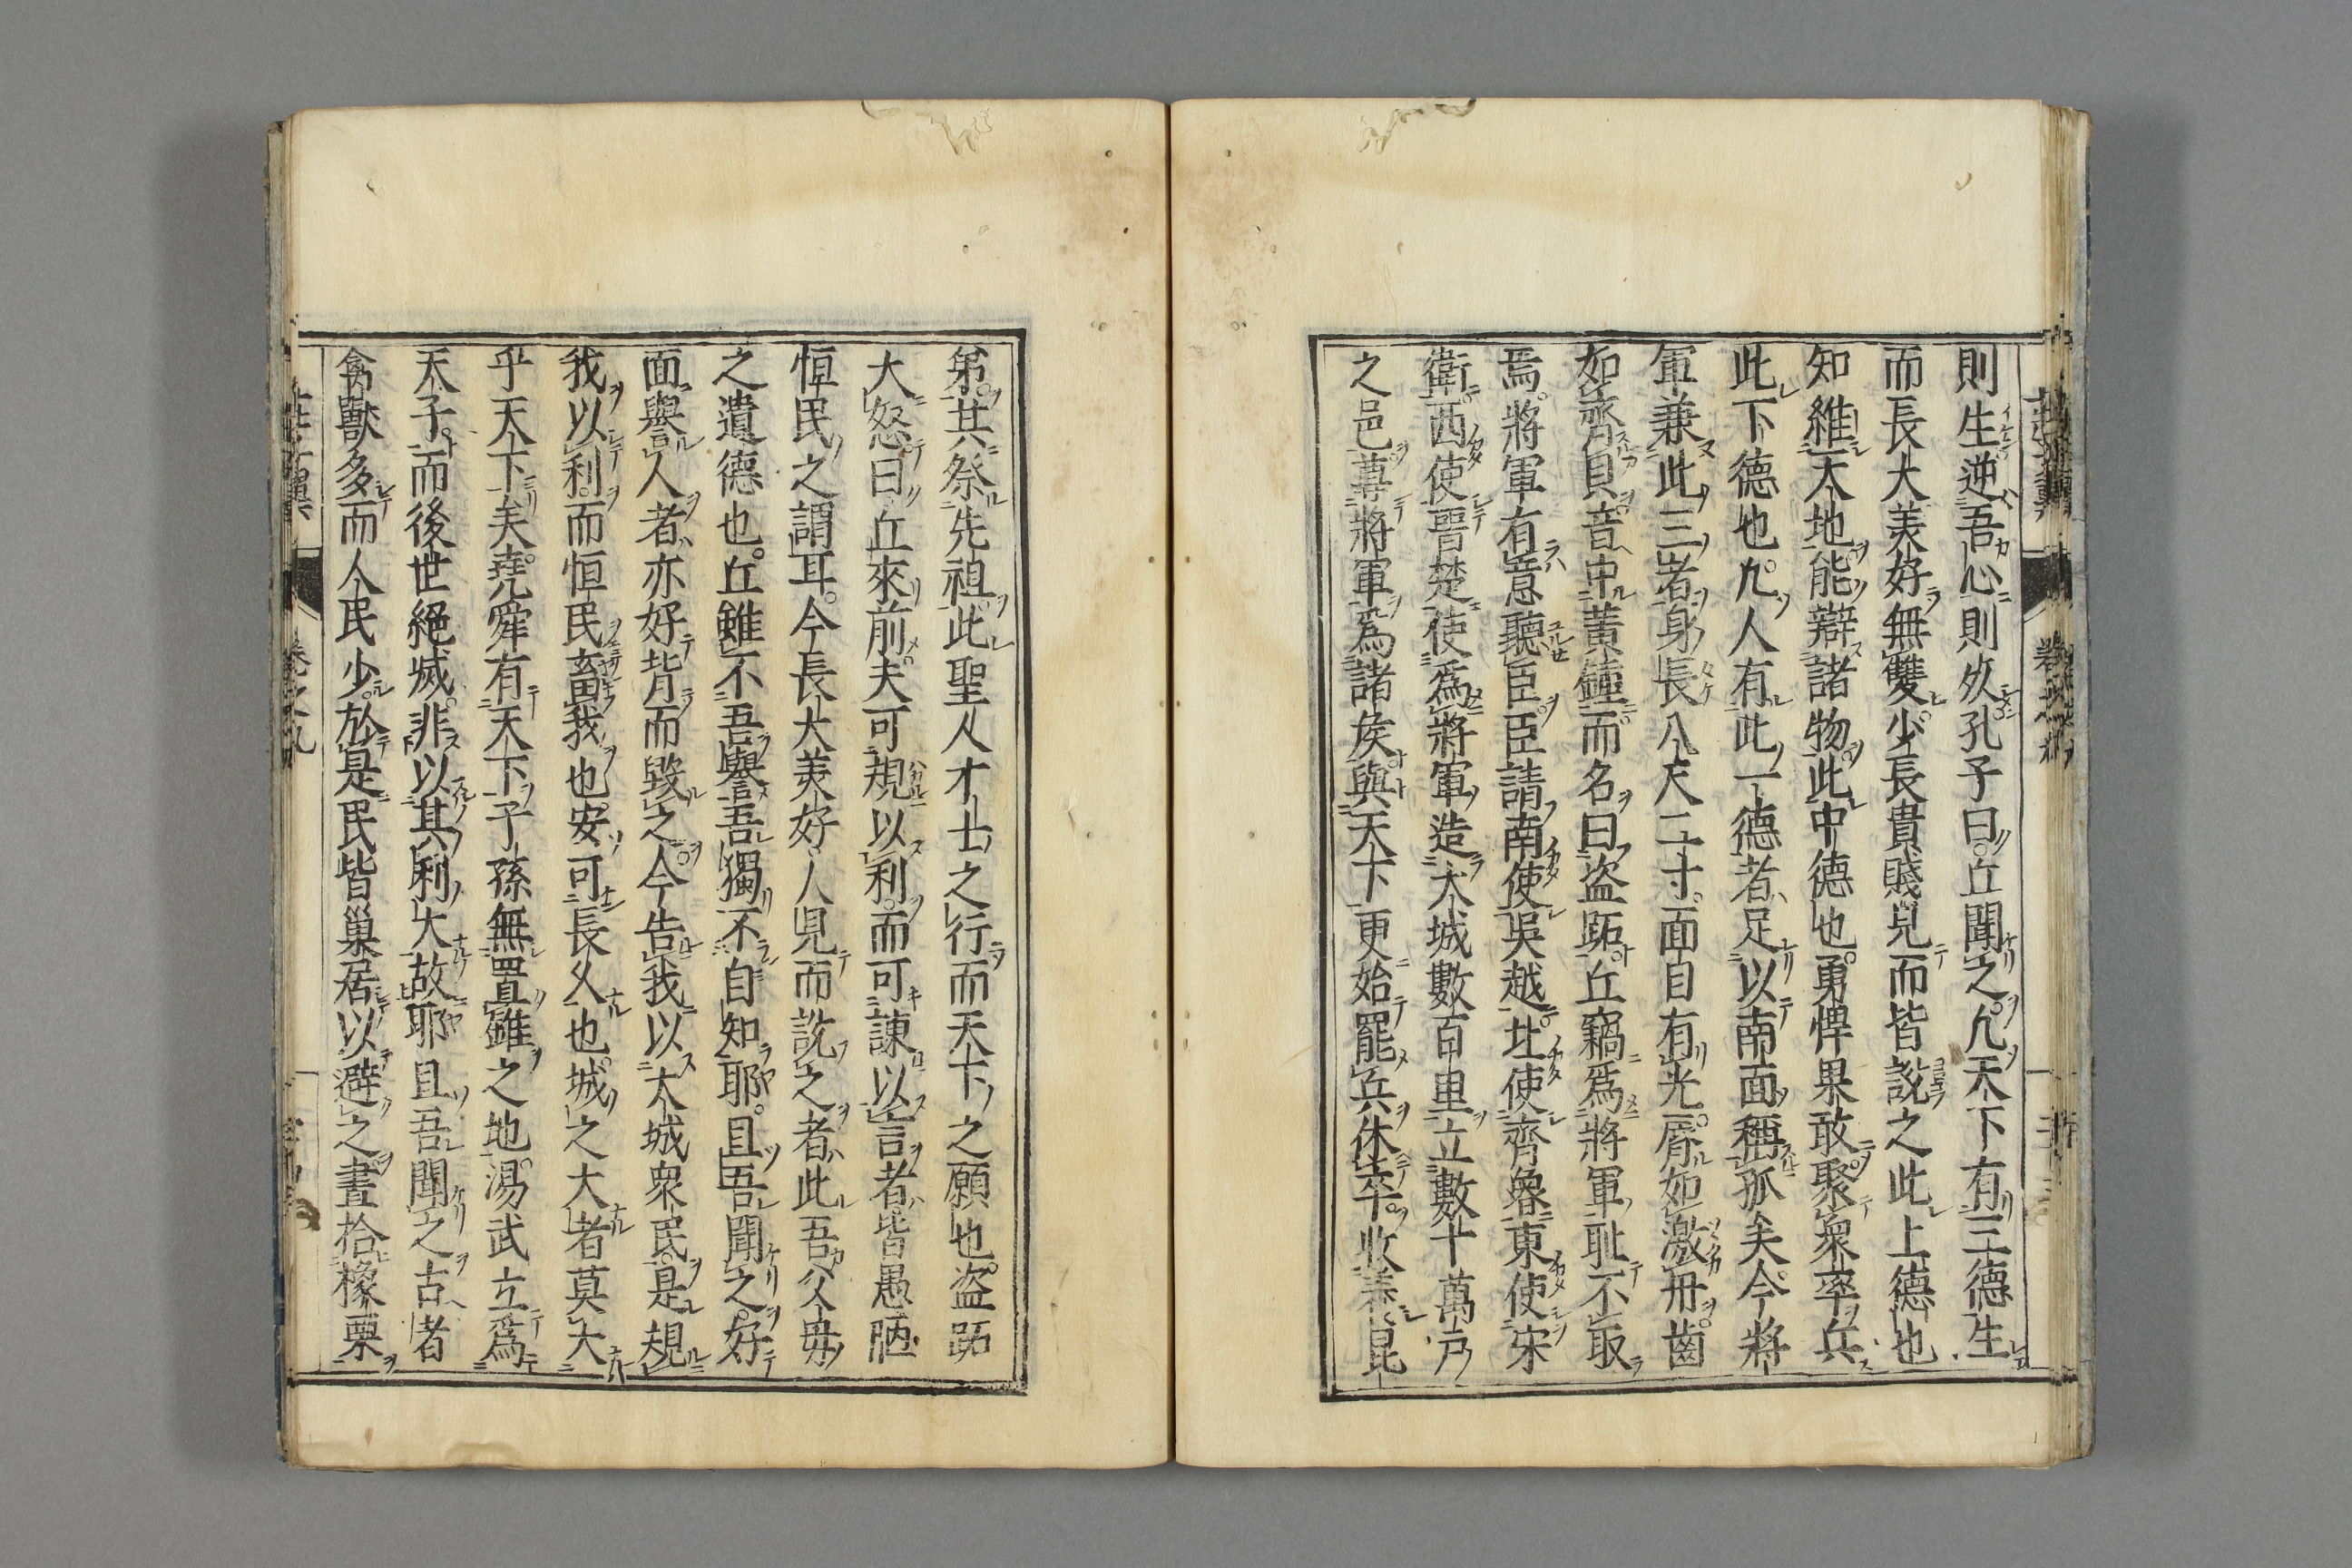 則生逆吾心則死孔子曰丘聞之凡天下有三德生
而長大美好無雙少長貴賤見而皆說之此上德也
知維天地能辯諸物此中德也勇悍果敢聚衆率兵
此下德也凡人有此一德者足以南面稱孤矣今將
軍兼此三者身長八尺二寸面目有光脣如激丹齒
如齊貝音中黃鐘而名曰盗跖丘竊爲將軍恥不取
焉將軍有意聽臣臣請南使吳越北使齊魯東使宋
衛西使晋楚使爲將軍造大城數百里立數十萬户
之邑尊將軍爲諸侯與天下更始罷兵休卒收養昆
弟共祭先祖此聖人才士之行而天下之願也盗跖
大怒曰丘來前夫可規以利而可諫以言者皆愚陋
恒民之謂耳今長大美好人見而說之者此吾父母
之遺德也丘雖不吾譽吾獨不自知耶且吾聞之好
面譽人者亦好背而毀之今告我以大城衆民是規
我以利而恒民畜我也安可長久也城之大者莫大
乎天下矣堯舜有天下子孫無置錐之地湯武立爲
天子而後世絕滅非以其利大故耶且吾聞之古者
禽獸多而人民少於是民皆巢居以避之晝拾橡栗
卷之九